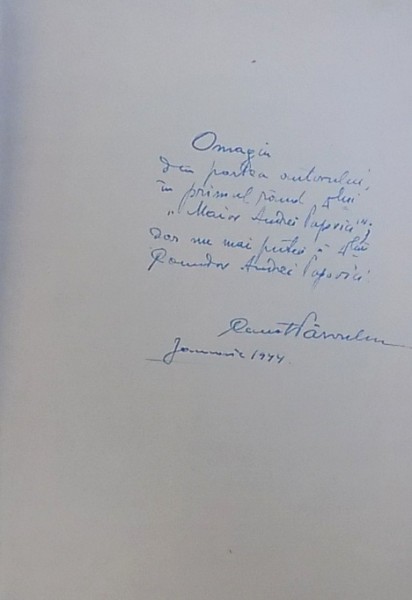 Omagiu
din partea autorului,
în primul rând dlui
"Maior Andrei Popovici",
dar nu mai puțin și dlui
Andrei Popovici
Ianuarie 1944.